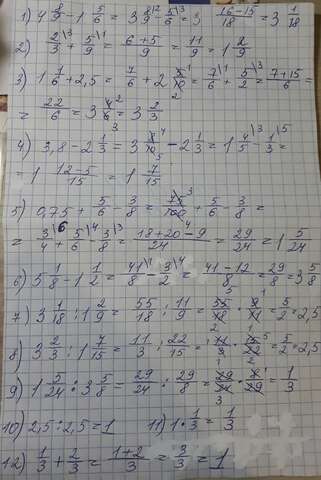 1) 4 8/9 - 1 5/6 = 3 8/9\2 - 5/6\3 = 3 (16-15)/18 = 3 1/18
2) 2/3\3 + 5/9\1 = (6+5)/9 = 11/9 = 1 2/9
3) 1 1/6 + 2,5 = 7/6 + 2 5/10 = 7/6\1 + 5/2\3 = (7+15)/6 =
= 22/6 = 3 4/6 = 3 2/3
4) 3,8 - 2 1/3 = 3 8/10 - 2 1/3 = 1 4/5\3 - 1/3\5 =
= 1 (12-5)/15 = 1 7/15
5) 0,75 + 5/6 - 3/8 = 75/100 + 5/6 - 3/8 =
= 3/4\6 + 5/6\4 - 3/8\3 = (18+20-9)/24 = 29/24 = 1 5/24
6) 5 1/8 - 1 1/2 = 41/8\1 - 3/2\4 = (41-12)/8 = 29/8 = 3 5/8
7) 3 1/18 : 1 2/9 = 55/18 : 11/9 = 55/18 · 9/11 = 5/2 = 2,5
8) 3 2/3 : 1 7/15 = 11/3 : 22/15 = 11/3 · 15/22 = 5/2 = 2,5
9) 1 5/24 : 3 5/8 = 29/24 : 29/8 = 29/24 · 8/29 = 1/3
10) 2,5 : 2,5 = 1 11) 1 · 1/3 = 1/3
12) 1/3 + 2/3 = (1+2)/3 = 3/3 = 1